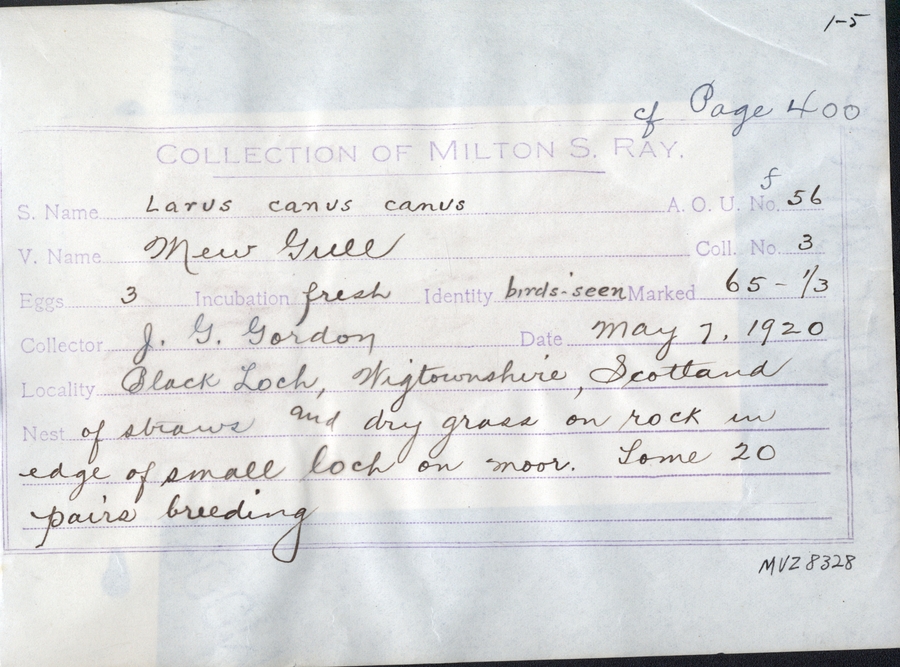 1-5
cf Page 400
COLLECTION OF MILTON S. RAY.
S. Name Larus canus canus A. O. U. No. f 56
V. Name Mew Gull Coll. No. 3
Eggs 3 Incubation fresh Identity birds seen Marked 65-1/3
Collector J. G. Gordon Date May 7, 1920
Locality Black Loch, Wigtownshire, Scotland
Nest of straws and dry grass on rock in
edge of small loch on moor. Some 20
pairs breeding
MVZ 8328